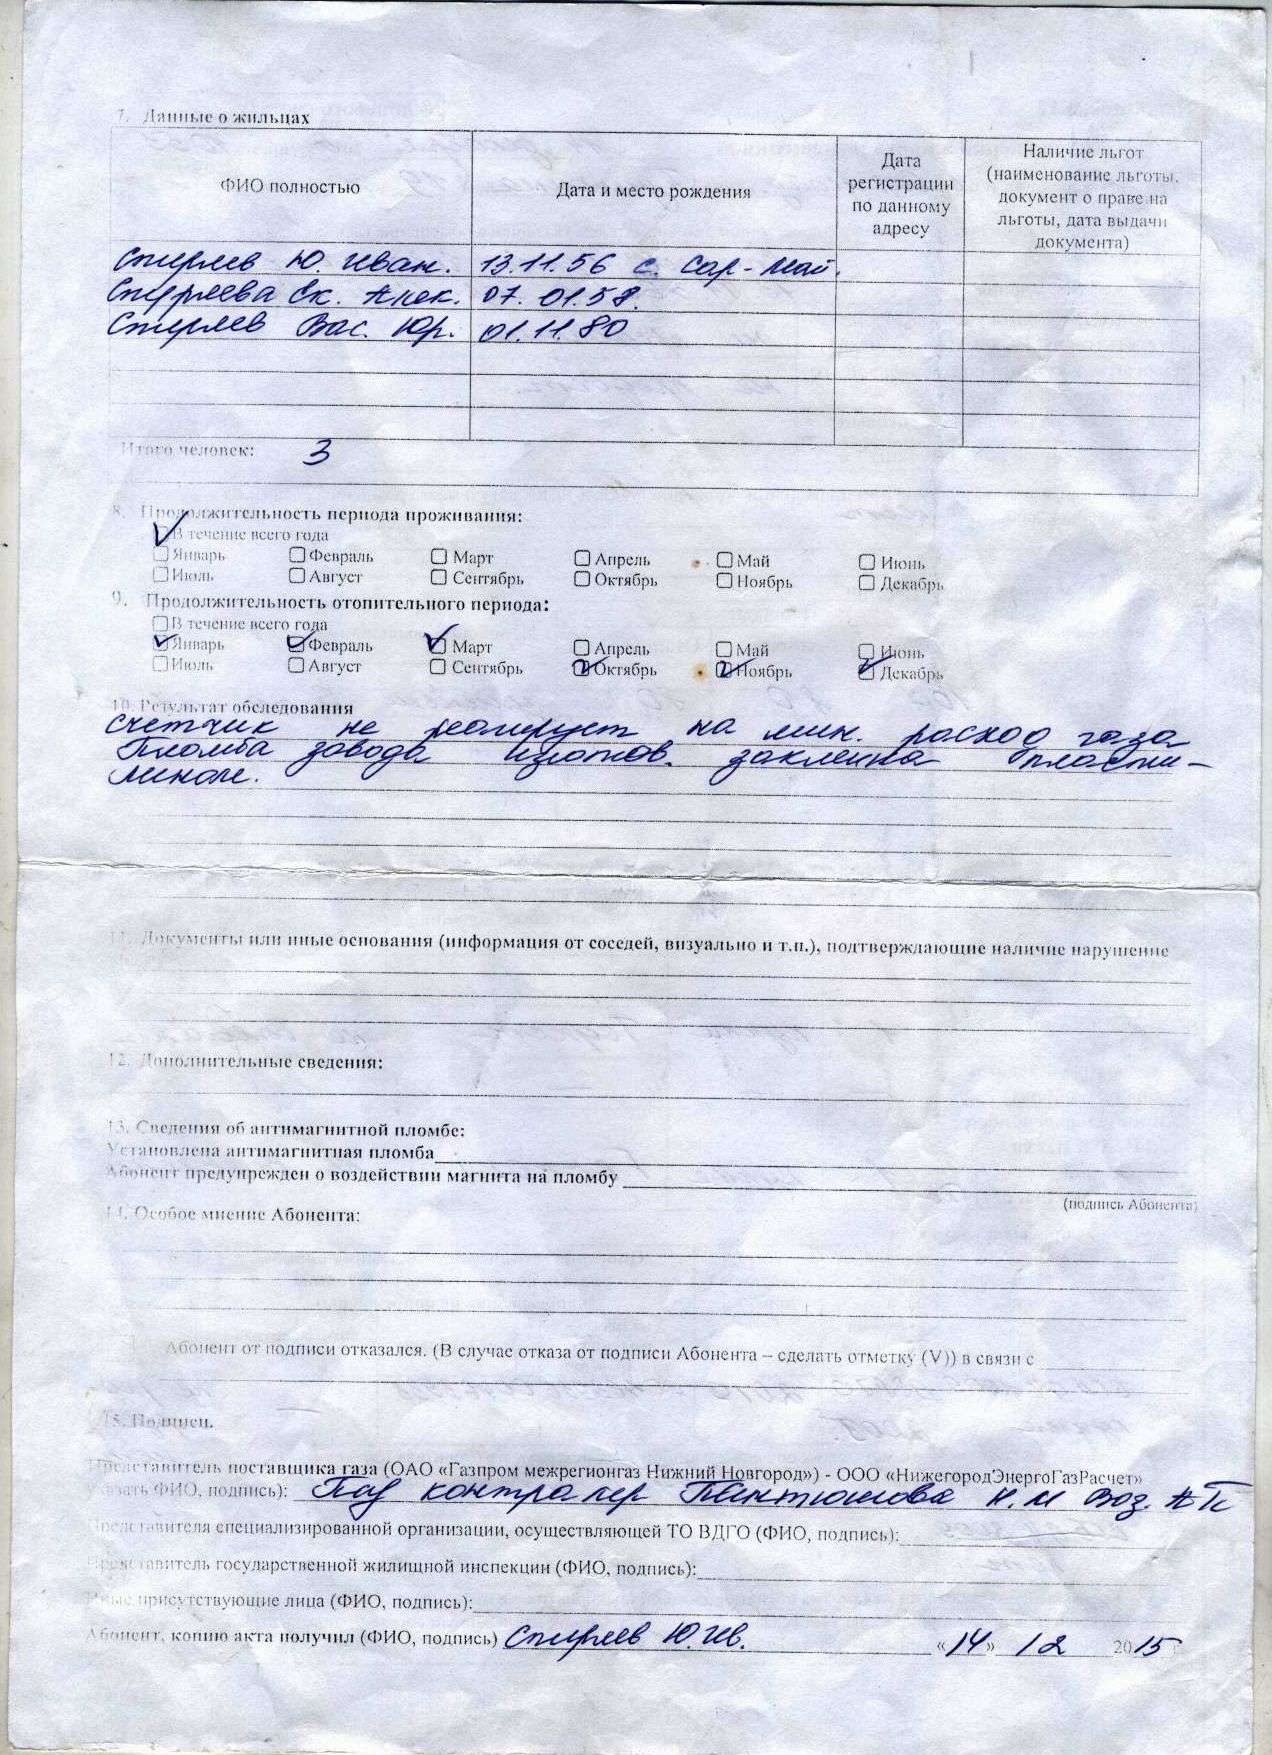 7. Данные о жильцах
ФИО полностью
Дата и место рождения
Дата регистрации по данному адресу
Наличие льгот (наименование льготы, документ о праве на льготы, дата выдачи документа)
Спиряев Ю. Иван. 13.11.56 с. Сар-май.
Спиряева Алек. 07.01.58.
Спиряев Вас. Юр. 01.11.80
Итого человек: 3
8. Продолжительность периода проживания:
В течение всего года
Январь Февраль Март Апрель Май Июнь
Июль Август Сентябрь Октябрь Ноябрь Декабрь
9. Продолжительность отопительного периода:
В течение всего года
Январь Февраль Март Апрель Май Июнь
Июль Август Сентябрь Октябрь Ноябрь Декабрь
10. Результат обследования
счетчик не реагирует на мин. расход газа
Пломба завода изготов. заклеина пласти-
лином.
11. Документы или иные основания (информация от соседей, визуально и т.п.), подтверждающие наличие нарушение
12. Дополнительные сведения:
13. Сведения об антимагнитной пломбе:
Установлена антимагнитная пломба
Абонент предупрежден о воздействии магнита на пломбу
(подпись Абонента)
14. Особое мнение Абонента:
Абонент от подписи отказался. (В случае отказа от подписи Абонента – сделать отметку (V)) в связи с
15. Подписи.
Представитель поставщика газа (ОАО «Газпром межрегионгаз Нижний Новгород») - ООО «НижегородЭнергоГазРасчет»
(указать ФИО, подпись): контролер Пантюшова Н.М
Представителя специализированной организации, осуществляющей ТО ВДГО (ФИО, подпись):
Представитель государственной жилищной инспекции (ФИО, подпись):
Иные присутствующие лица (ФИО, подпись):
Абонент, копию акта получил (ФИО, подпись) Спиряев Ю.Ив. «14» 12 2015 г